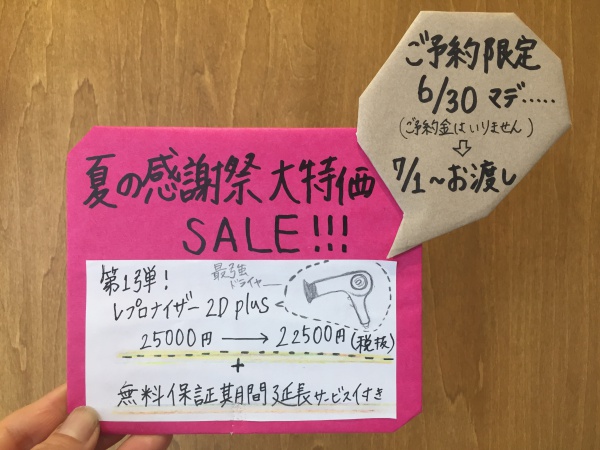 ご予約限定
6/30 マデ.....
(ご予約金はいりません)
⇩
7/1~お渡し
夏の感謝祭 大特価
SALE!!!
第1弾!
最強
ドライヤー
レプロナイザー 2D plus
25000円 → 22500円(税抜)
+
無料保証期間延長サービス付き